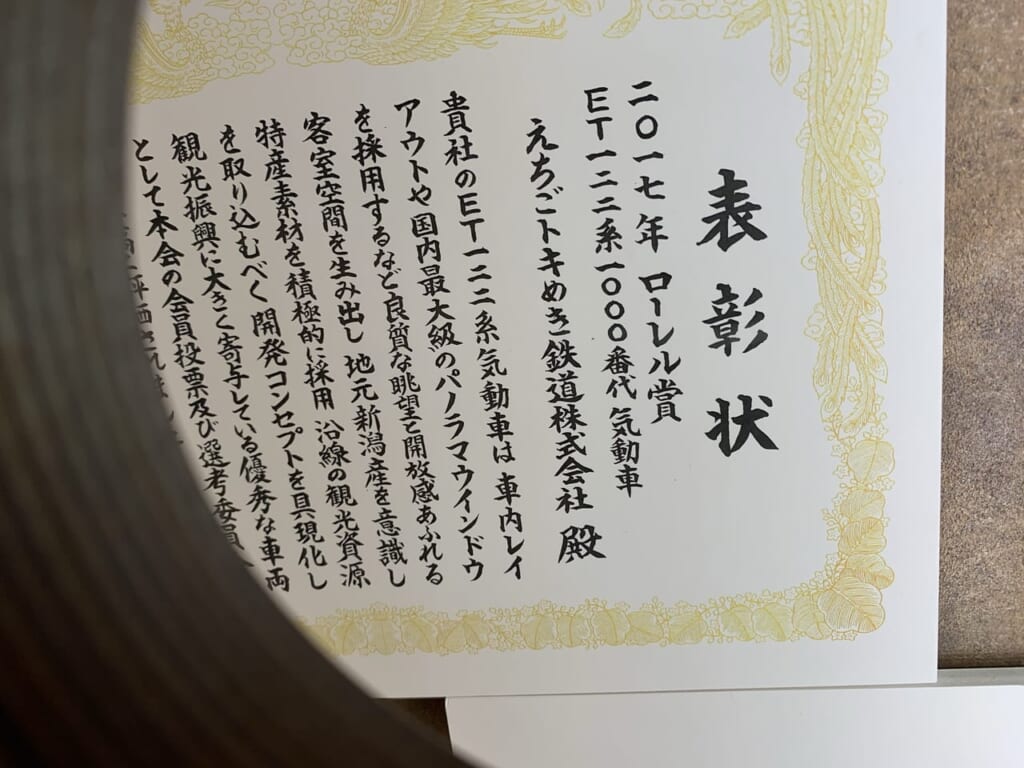 表彰状
二〇一七年 ローレル賞
ET一二二系一〇〇〇番代気動車
えちごトキめき鉄道株式会社 殿
貴社のET一二二系気動車は 車内レイ
アウトや国内最大級のパノラマウインドウ
を採用するなど良質な眺望と開放感あふれる
客室空間を生み出し 地元新潟産を意識し
特産素材を積極的に採用 沿線の観光資源
を取り込むべく開発コンセプトを具現化し
観光振興に大きく寄与している優秀な車両
として本会の会員投票及び選考委員
評価されました